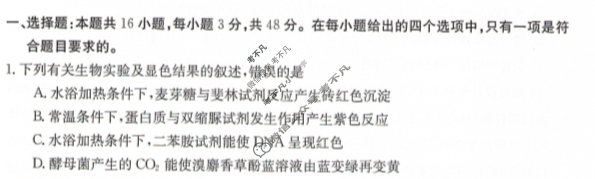 一、选择题:本题共 16 小题,每小题 3 分,共 48 分。在每小题给出的四个选项中,只有一项是符
合题目要求的。
1. 下列有关生物实验及显色结果的叙述,错误的是
A. 水浴加热条件下,麦芽糖与斐林试剂反应产生砖红色沉淀
B. 常温条件下,蛋白质与双缩脲试剂发生作用产生紫色反应
C. 水浴加热条件下,二苯胺试剂能使 DNA 呈现红色
D. 酵母菌产生的 CO₂ 能使溴麝香草酚蓝溶液由蓝变绿再变黄